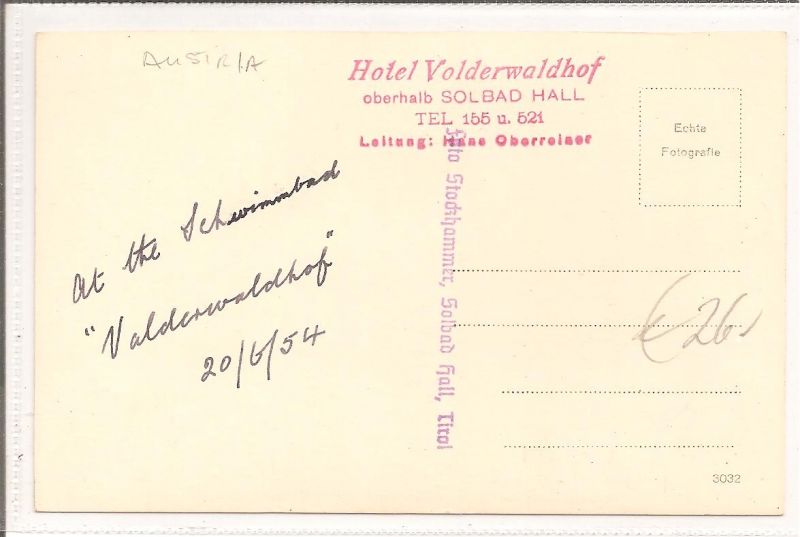 AUSTRIA
Hotel Volderwaldhof
oberhalb SOLBAD HALL
TEL 155 u. 521
Leitung: Hans Oberreiner
Echte
Fotografie
At the Schwimmbad
"Valderwaldhof"
20/6/54
Foto Stockhammer, Solbad Hall, Tirol
26
3032